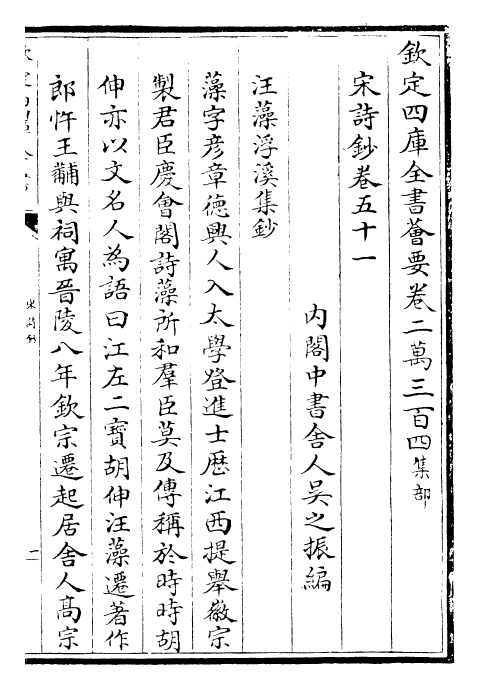 欽定四庫全書薈要卷二萬三百四集部
宋詩鈔卷五十一
內閣中書舍人吳之振編
汪藻浮溪集鈔
藻字彥章德興人入太學登進士歷江西提舉徽宗
製君臣慶會閣詩藻所和羣臣莫及傳稱於時時胡
伸亦以文名人為語曰江左二寶胡伸汪藻遷著作
郎忤王黼與祠寓晉陵八年欽宗遷起居舍人高宗
宋詩鈔
二